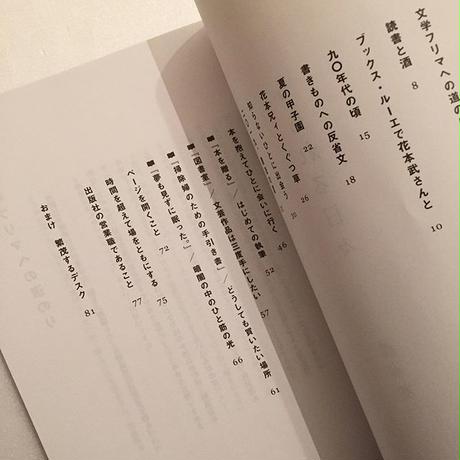 文学フリマへの道の
読書と酒 8
ブックス・ルーエで花本武さんと 10
九〇年代の頃 15
書きものへの反省文 18
夏の甲子園 22
花本兄ィとくぐつ草 26
知らないひとに出会う 30
本を抱えてひとに会いに行く 46
■『本を贈る』/はじめての執筆 52
■『図書室』/文芸作品は三度手にしたい 57
■『掃除婦のための手引き書』/どうしても買いたい場所 61
■『夢も見ずに眠った。』/暗闇の中のひと筋の光 66
ページを開くこと 72
時間を超えて場をともにする 75
出版社の営業職であること 77
おまけ 繁茂するデスク 81